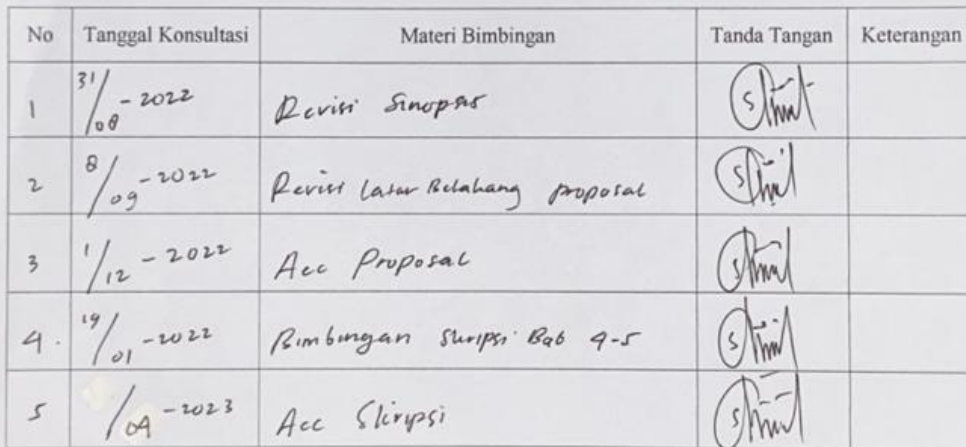 No Tanggal Konsultasi Materi Bimbingan Tanda Tangan Keterangan
1 31/08 - 2022 Revisi Sinopsis
2 8/09 - 2022 Revisi Latar Belakang proposal
3 1/12 - 2022 Acc Proposal
4. 19/01 - 2022 Bimbingan Skripsi Bab 4-5
5 /04 - 2023 Acc Skripsi